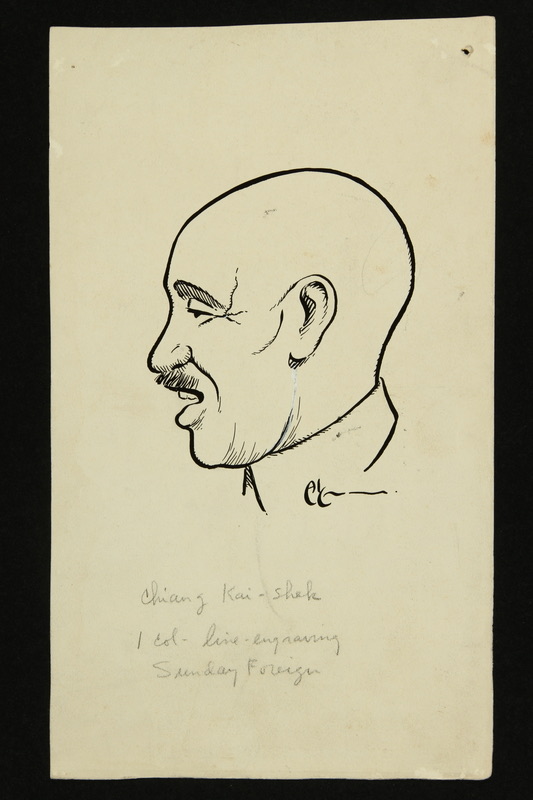 Chiang Kai-shek
1 col- line-engraving
Sunday Foreign